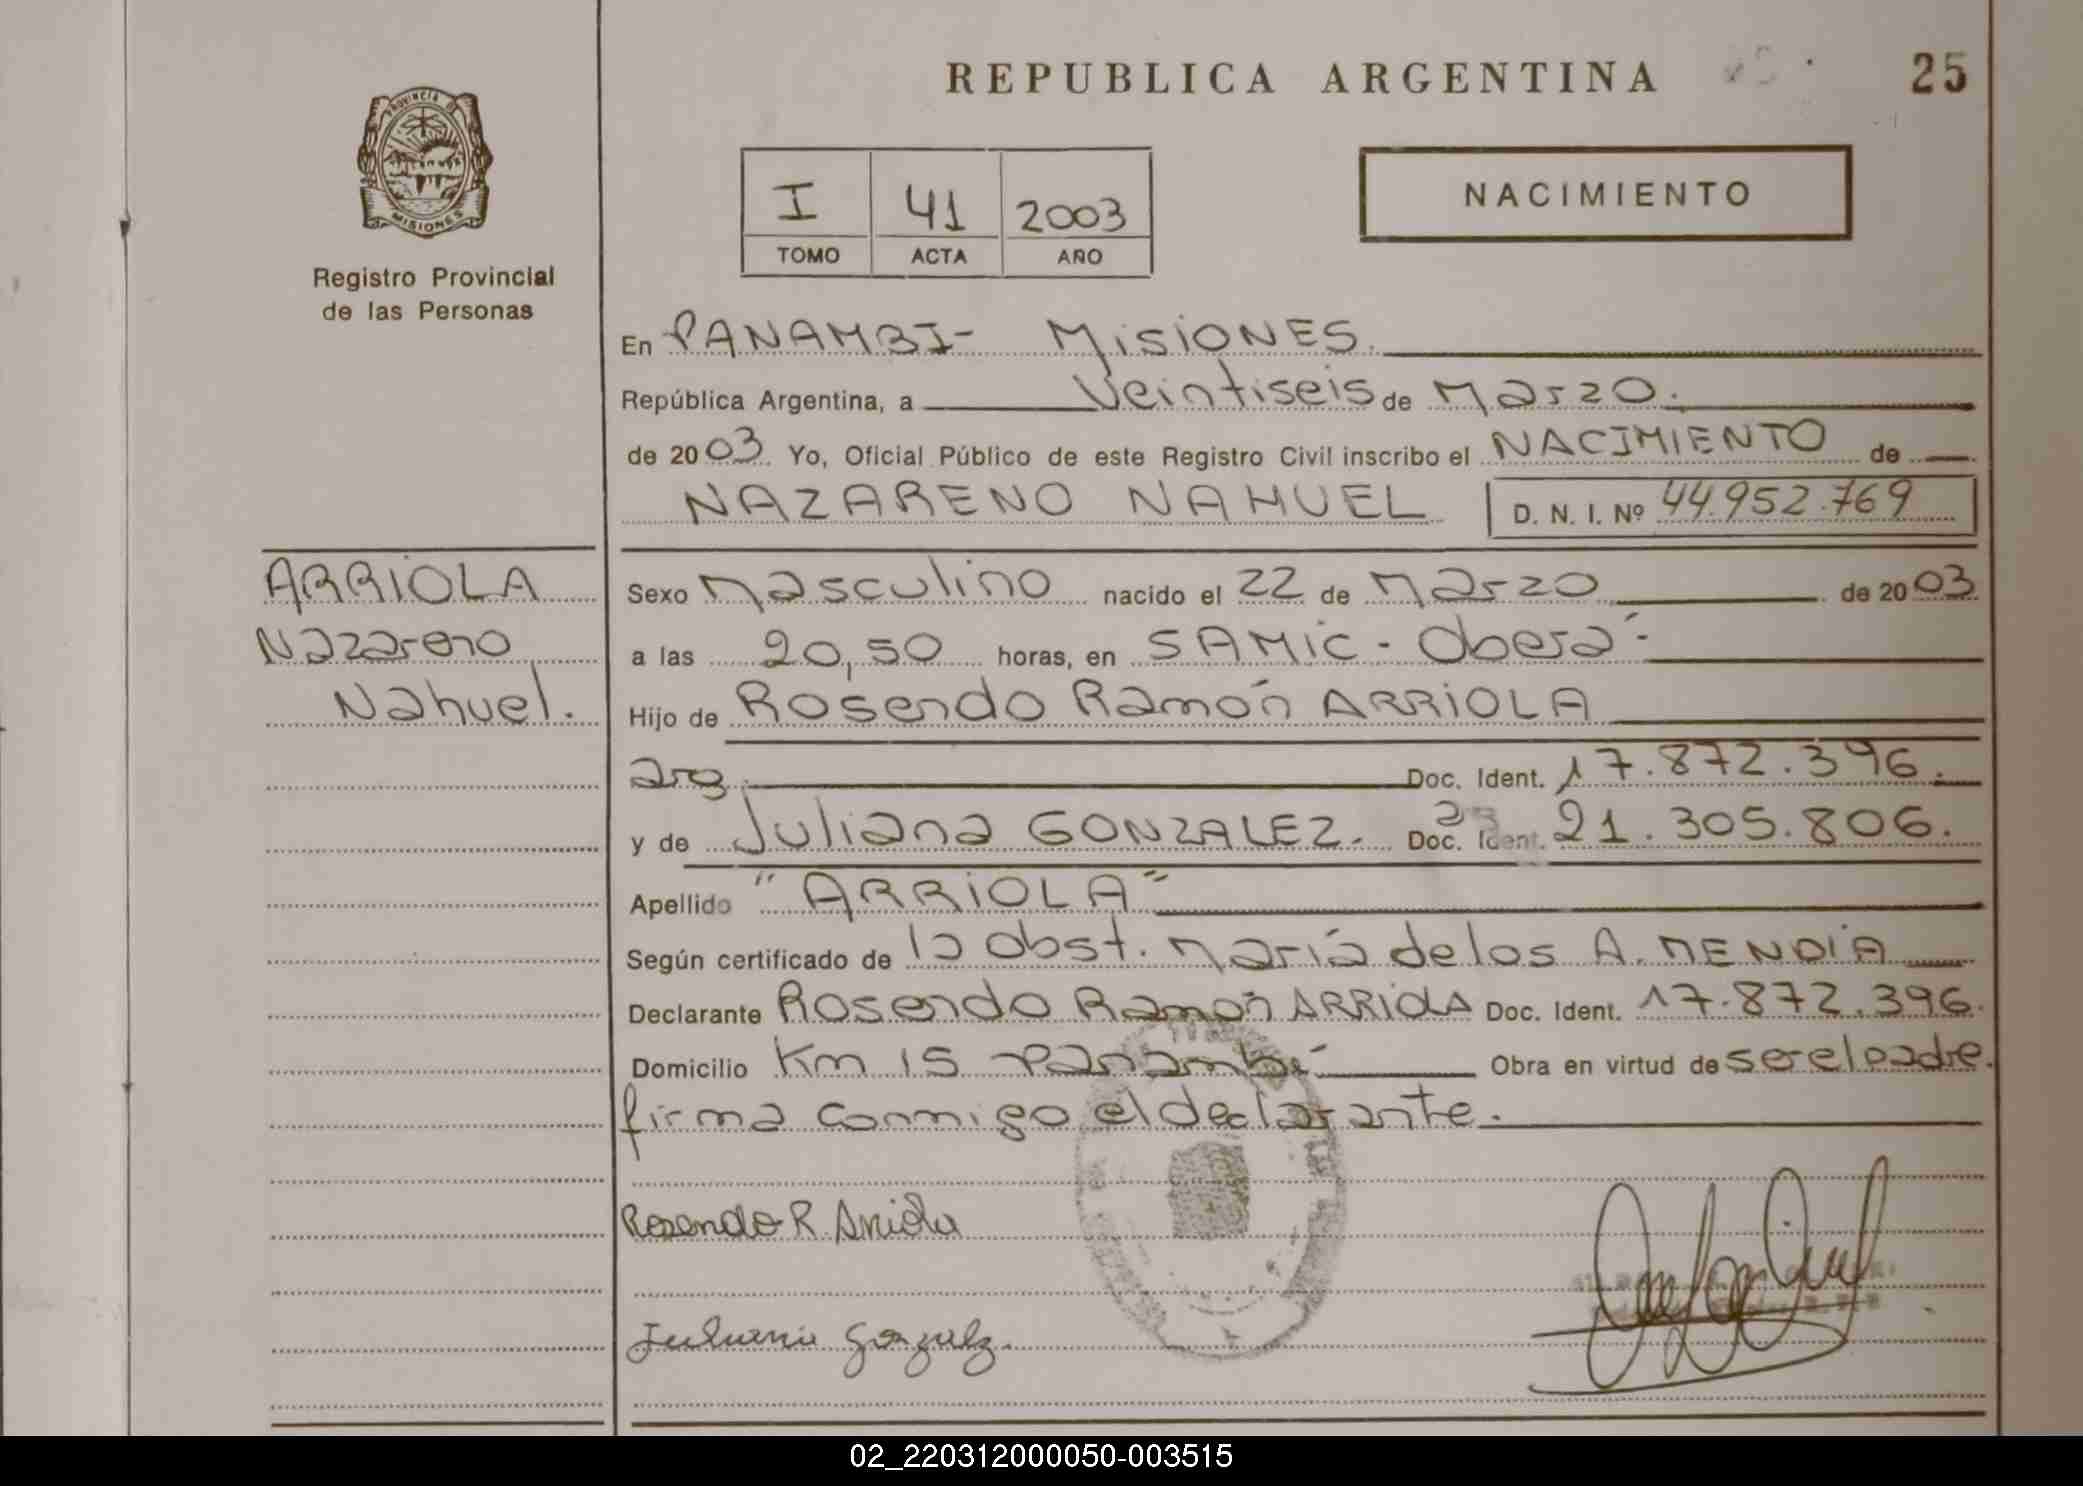 REPUBLICA ARGENTINA
25
PROVINCIA DE
MISIONES
Registro Provincial
de las Personas
I 41 2003
TOMO ACTA AÑO
NACIMIENTO
En PANAMBI- MISIONES.
República Argentina, a Veintiseis de Marzo.
de 2003. Yo, Oficial Público de este Registro Civil inscribo el NACIMIENTO de
NAZARENO NAHUEL D. N. I. Nº 44.952.769
ARRIOLA
Nazareno
Nahuel.
Sexo Masculino nacido el 22 de Marzo de 2003
a las 20,50 horas, en SAMIC - Oberá-
Hijo de Rosendo Ramón ARRIOLA
arg. Doc. Ident. 17.872.396.
y de Juliana GONZALEZ. Doc. Ident. 21.305.806.
Apellido "ARRIOLA"
Según certificado de la Obst. María de los A. MENDIA
Declarante Rosendo Ramón ARRIOLA Doc. Ident. 17.872.396.
Domicilio Km 15 Panambí Obra en virtud de ser el padre.
firma conmigo el declarante.
Rosendo R. Arriola
Juliana Gonzalz.
02_220312000050-003515